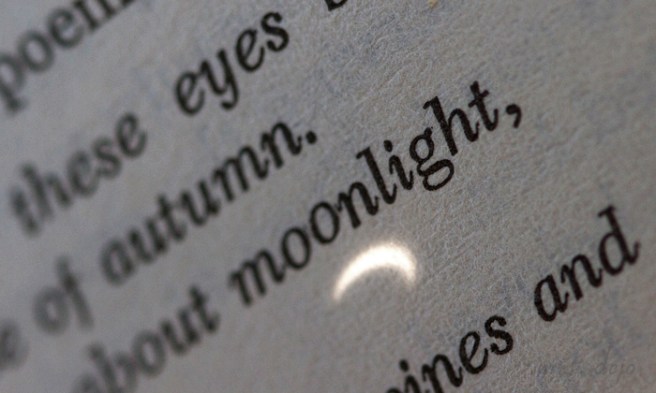 poem
these eyes
of autumn.
about moonlight,
and